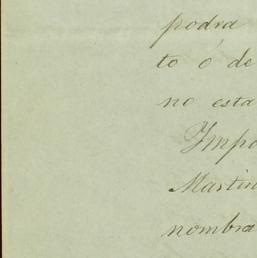 podra
to ó de
no esta
Impo
Martin
nombra